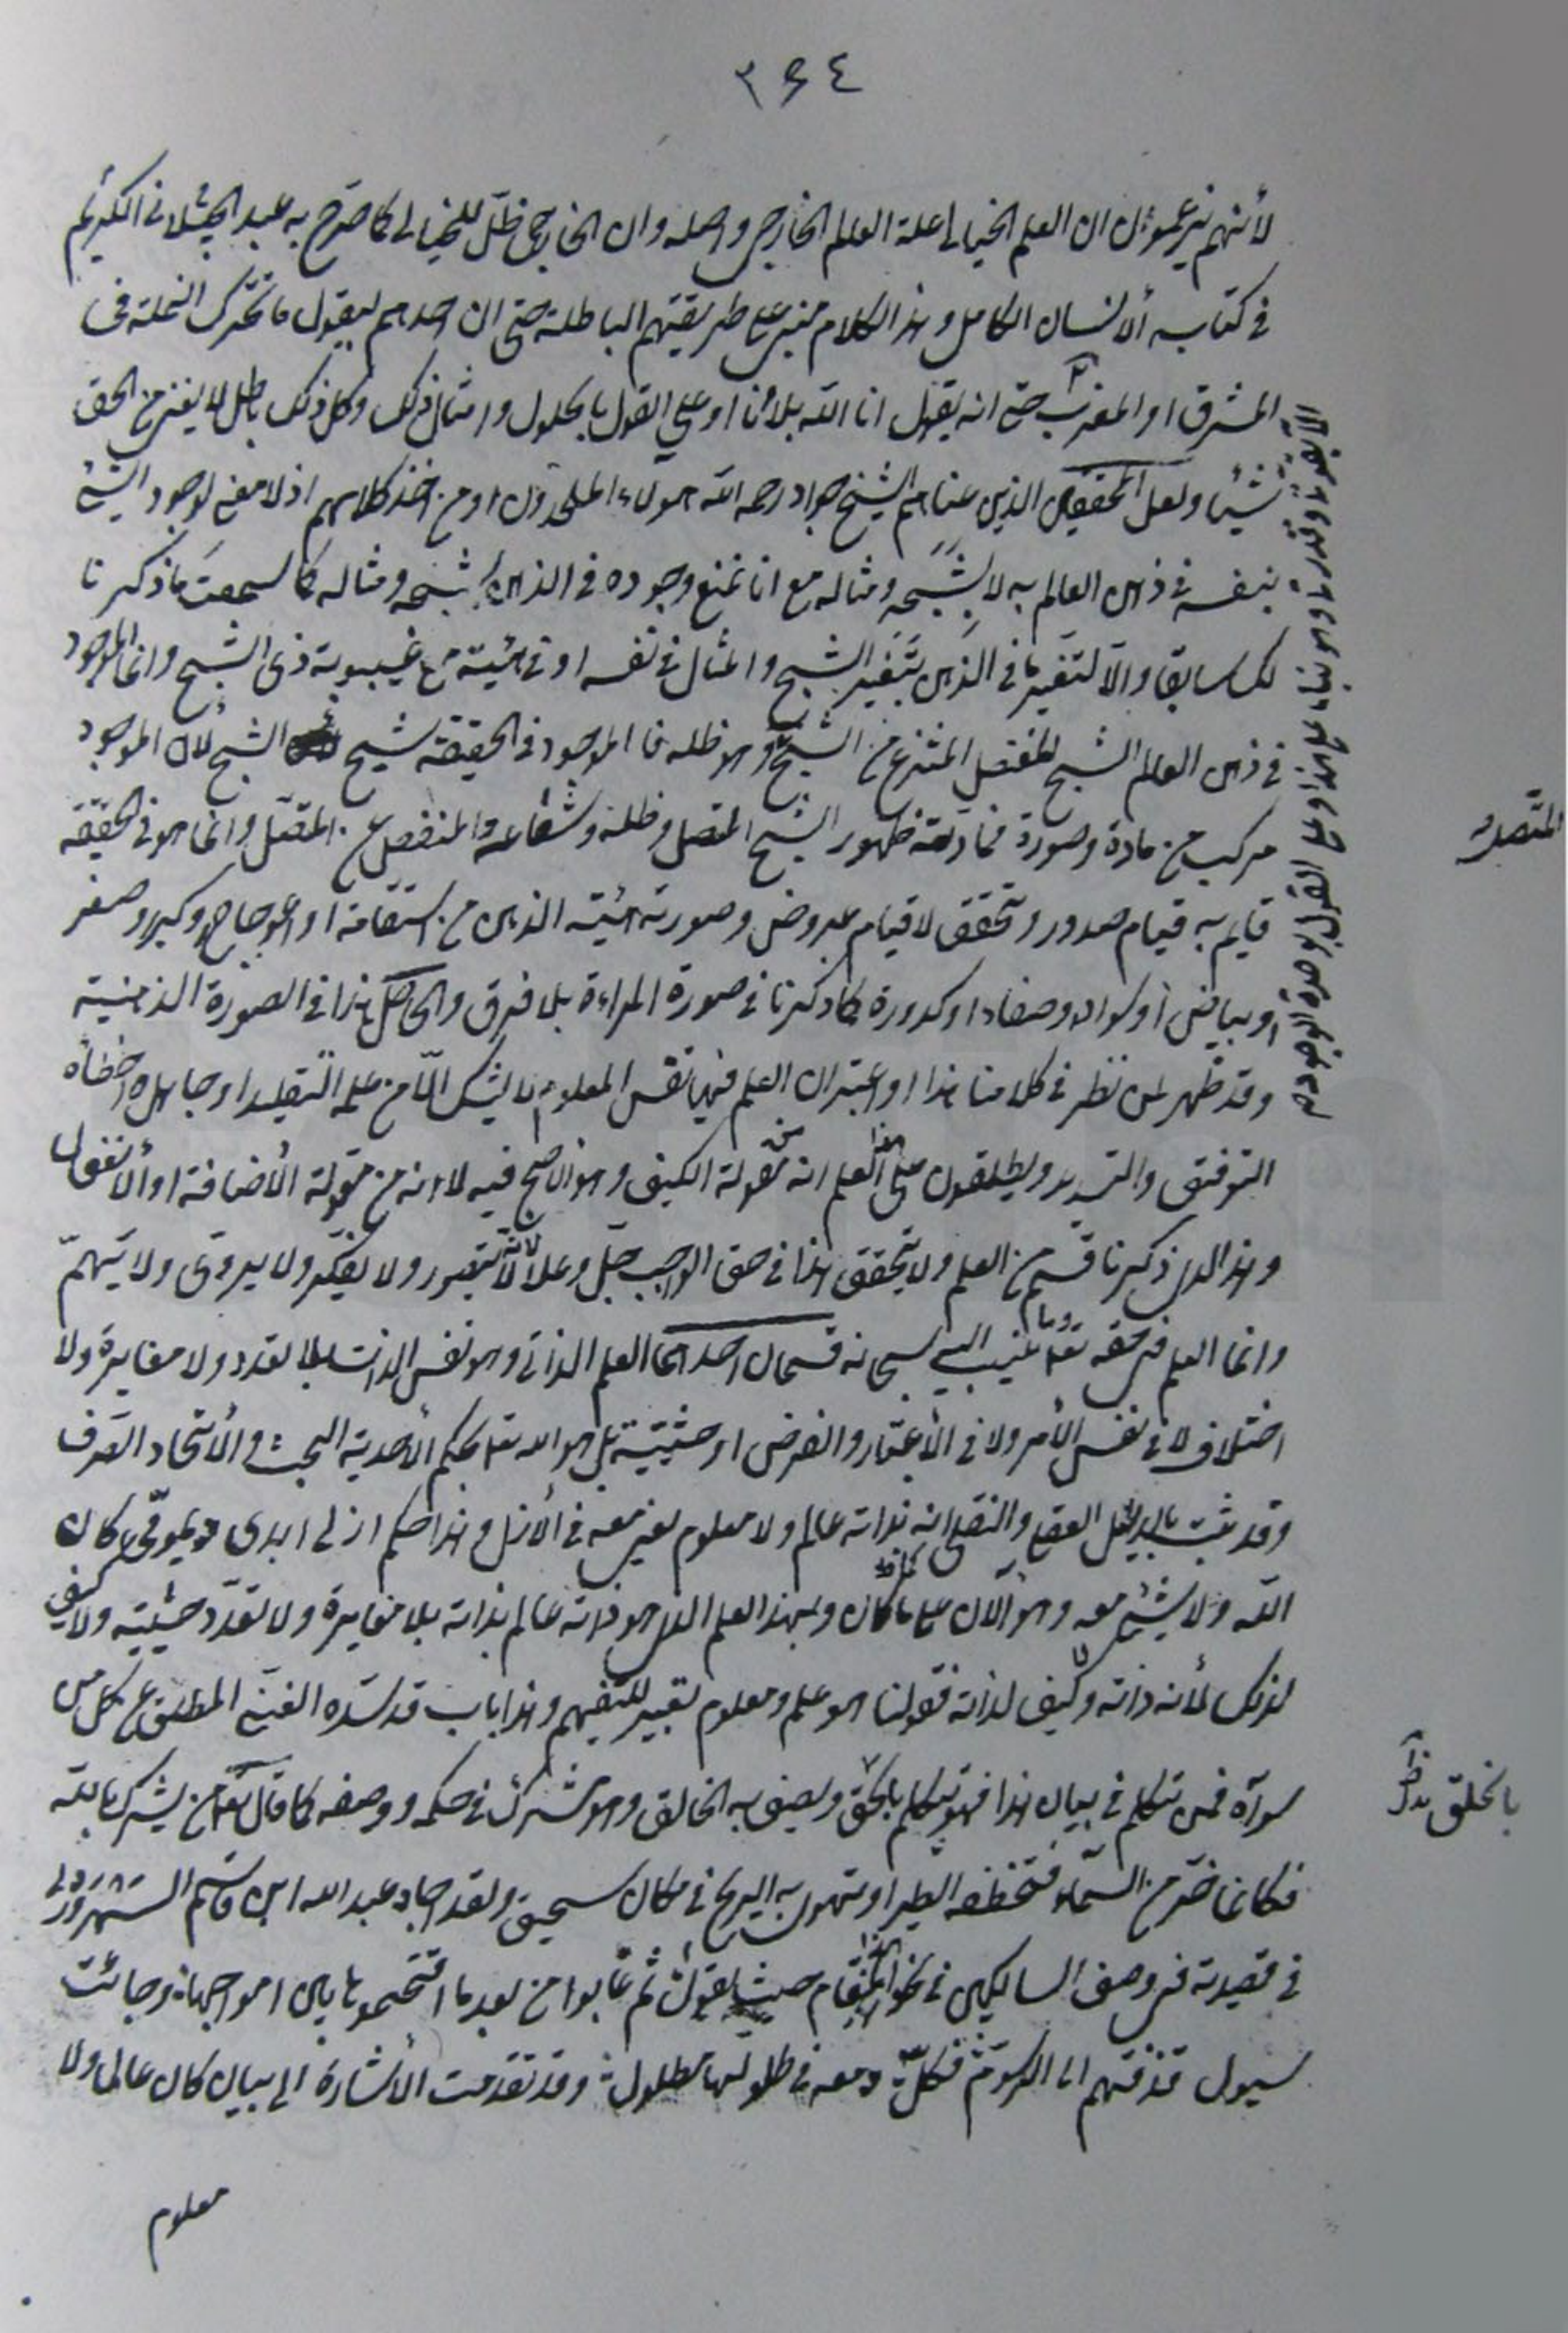 ٣٦٤
لأنهم يزعمون ان العلم الخيالي علة العالم الخارجي واصله وان الخارجي ظل للخيالي كما صرح به عبد الكريم
في كتابه ألانسان الكامل وهذا الكلام مبني على طريقتهم الباطلة حتى ان احدهم ليقول ما تحرك النملة في
المشرق او المغرب حتى انه يقول انا الله بلا أنا او على القول بالحلول وامثال ذلك وكل ذلك باطل لا يغني من الحق
شيئا ولعل المحققين الذين عناهم الشيخ جواد رحمه الله هؤلاء الملحدون او من اخذ كلامهم اذ لا معنى لوجود الشئ
بنفسه في ذهن العالم به لا بشبحه ومثاله مع انا نمنع وجوده في الذهن بشبحه ومثاله كما سمعت ما ذكرنا
لك سابقا والا لتغير ما في الذهن بتغير الشبح والمثال في نفسه او في هيئة مع غيبوبة ذى الشبح وانما الموجود
في ذهن العالم الشبح المنفصل المنتزع من الشبح وهو ظله فالموجود في الحقيقة شبح الشبح لأن الموجود
مركب من مادة وصورة فمادته ظهور الشبح المتصل وظله وشعاعه والمنفصل عن المتصل وانما هو في الحقيقة
قايم به قيام صدور وتحقق لا قيام عروض وصورته هيئة الذهن من استقامة او اعوجاج وكبر وصغر
او بياض أو سواد وصفاء او كدورة كما ذكرنا في صورة المراءة بلا فرق والحاصل هذا في الصورة الذهنية
وقد ظهر لمن نظر في كلامنا هذا او اعتبر ان العلم فيها نفس المعلوم لا يشك الا من علمه التقليد او جاهل اخطأه
التوفيق والتسديد ويطلقون على هذا العلم انه من مقولة الكيف وهو الاصح فيه لا انه من مقولة الأضافة او ألانفعال
وهذا الذي ذكرنا قسم من العلم ولا يتحقق هذا في حق الواجب جل وعلا لأنه لا يتصور ولا يفكر ولا يروى ولا يهم
وانما العلم في حقه تعا وما ينسب اليه سبحانه قسمان احدهما العلم الذاتي وهو نفس الذات بلا تعدد ولا مغايرة ولا
اختلاف لا في نفس الأمر ولا في الأعتبار والفرض او حيثية بل هو الله تعا بحكم الأحدية البحت والأتحاد الصرف
وقد ثبت بالدليل العقلي والنقلي انه بذاته عالم ولا معلوم لغير معه في الأزل وهذا حكم ازلي ابدى ديمومي كان
الله ولا شئ معه وهو ألان على ما كان وبهذا العلم الذي هو ذاته عالم بذاته بلا مغايرة ولا تعدد حيثية ولا كيف
لذلك لأنه ذاته ولا كيف لذاته فقولنا هو علم ومعلوم تعبير للتفهيم وهذا باب قد سده الغني المطلق عن كل من
سواه فمن تكلم في بيان هذا فهو يتكلم بالحق ويصف به الخالق وهو شرك في حكمه ووصفه كما قال تعا من يشرك بالله
فكانما خر من السماء فتخطفه الطير او تهوى به الريح في مكان سحيق ولقد اجاد عبد الله ابن قاسم السهروردي
في قصيدته في وصف السالكين في نحو هذا المقام حيث يقول ثم غابوا من بعد ما اقتحموها بين امواجها وجائت
سيول قذفتهم الى الرسوم فكل دمعه في طلولها مطلول وقد تقدمت الأشارة الى بيان كان عالما ولا
معلوم
المتصل
بالخلق